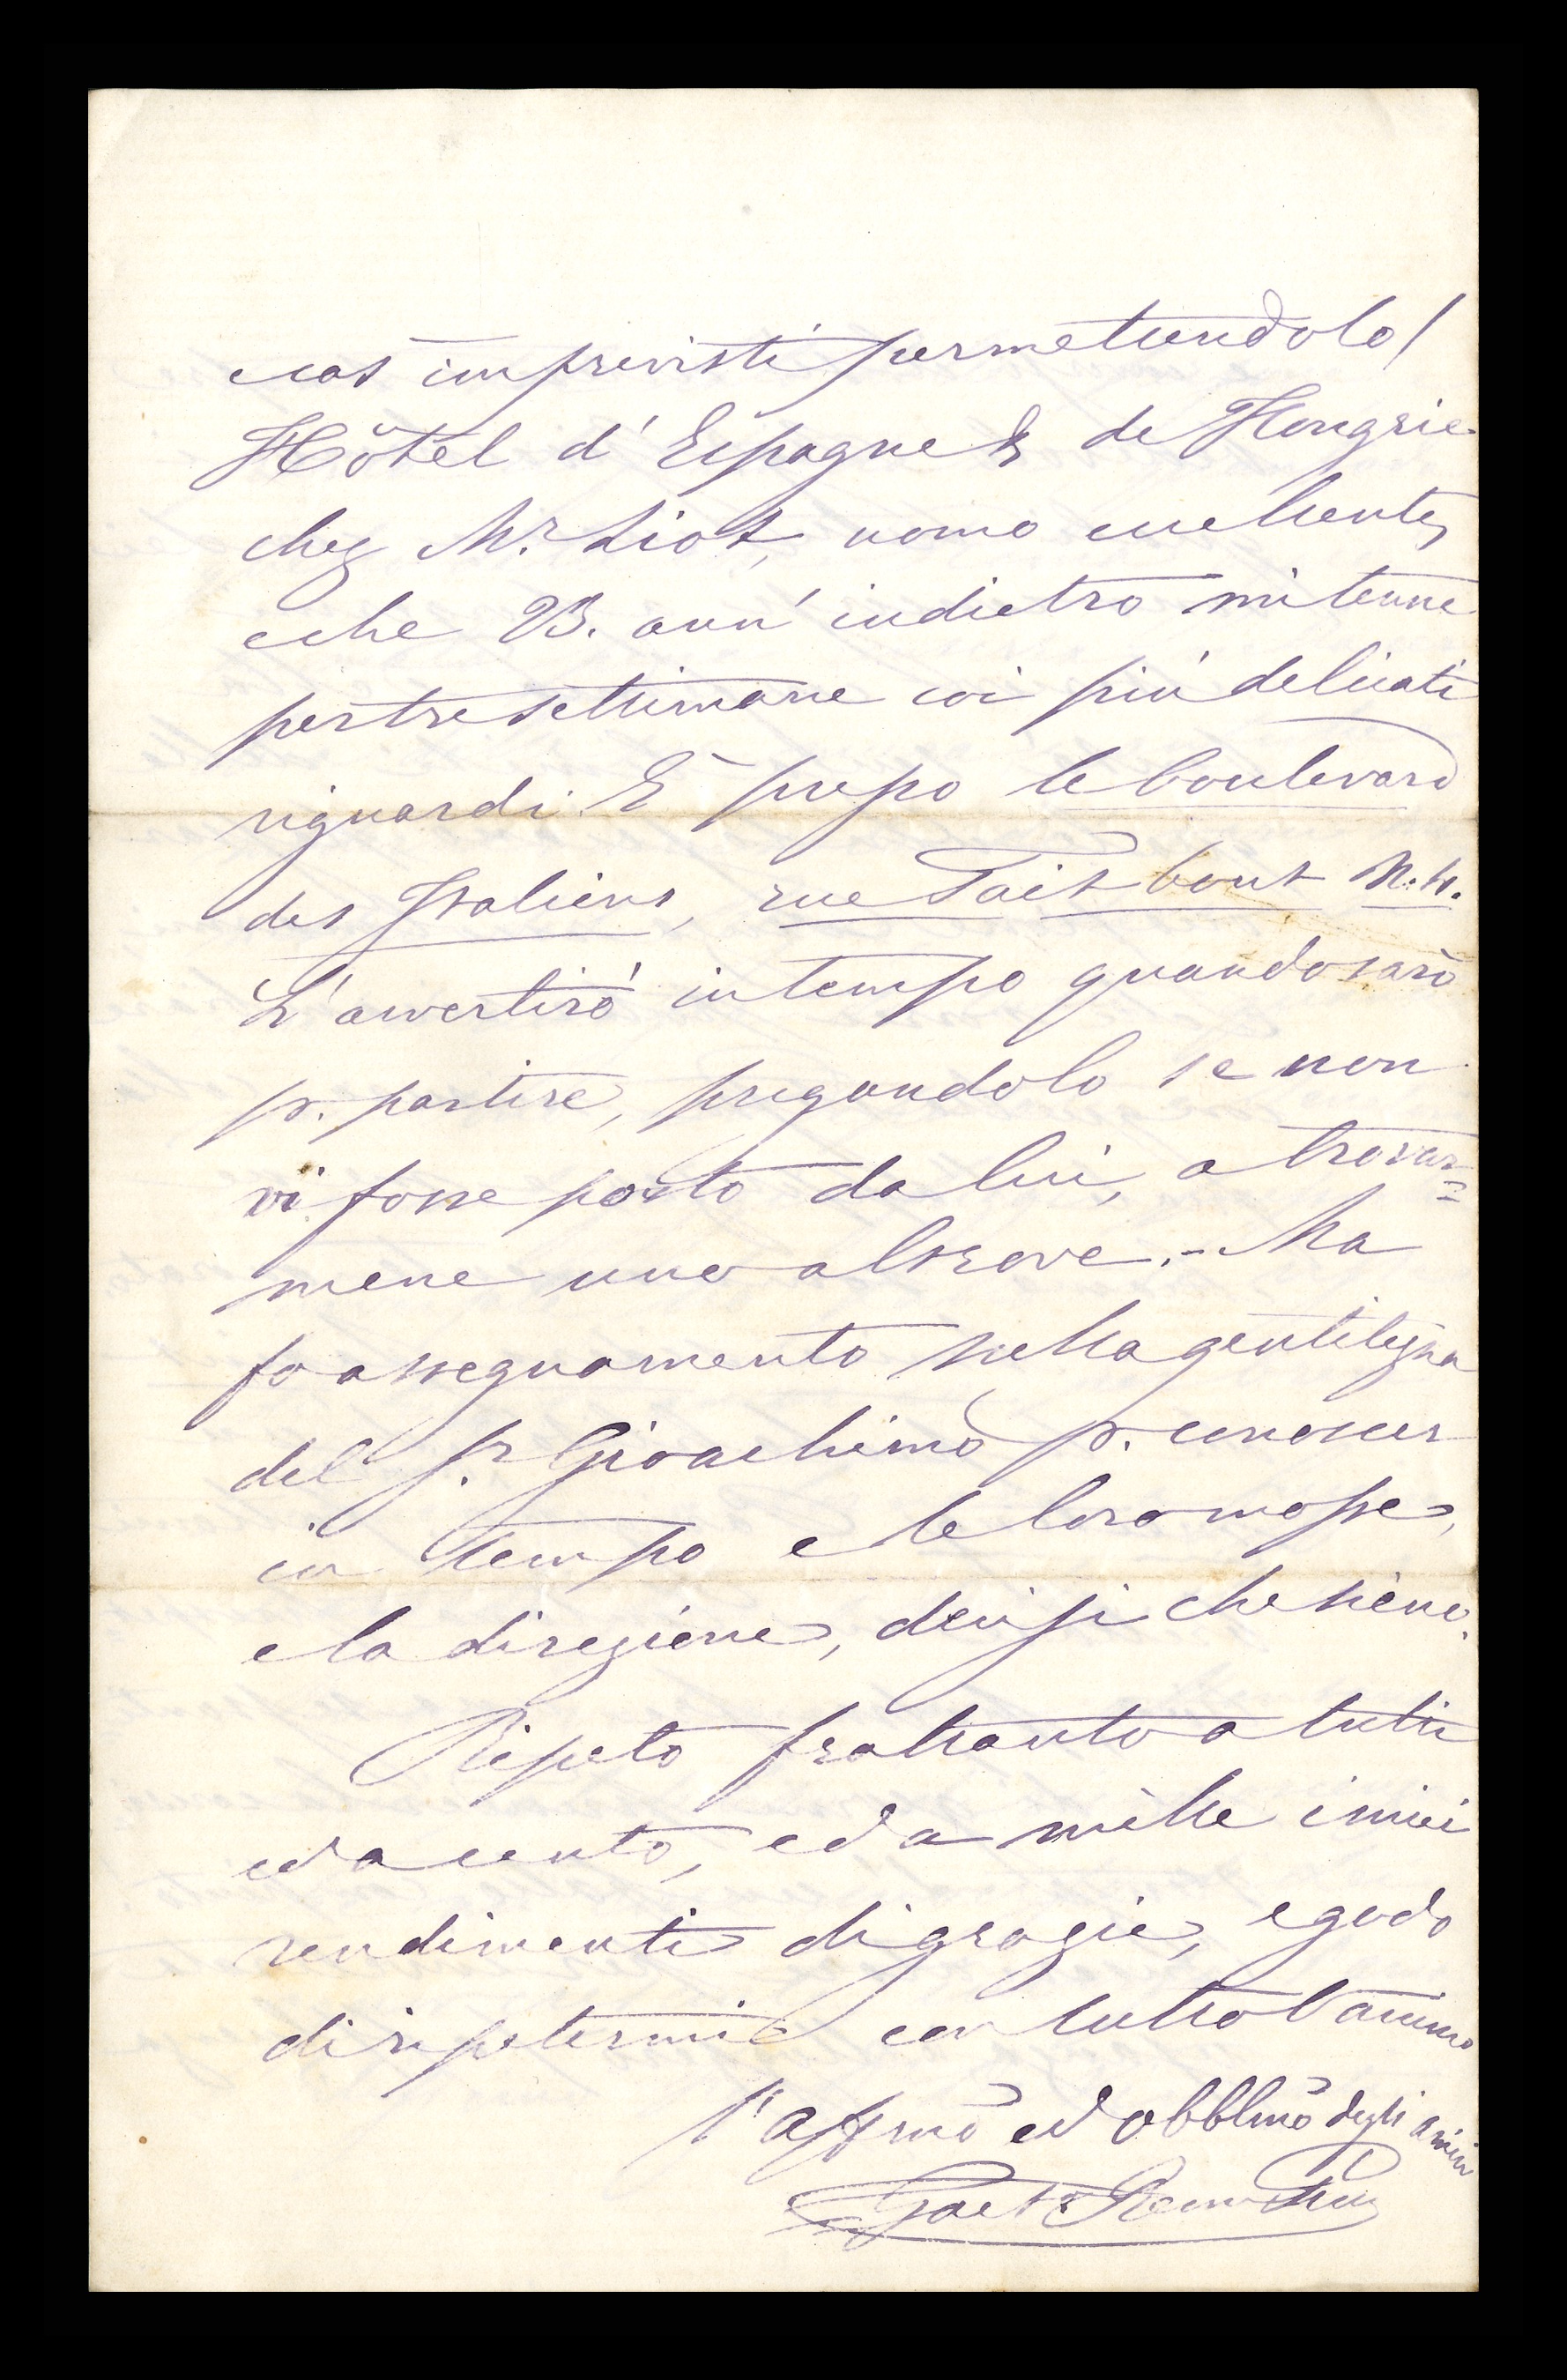 cas' imprevisti permettendolo/
Hôtel d'Espagne & de Hongrie
chez Mr. Liot, uomo eccellente,
e che 23. ann' indietro mi tenne
per tre settimane coi più delicati
riguardi. È presso le boulevard
des Italiens, rue Taitbout N. 4.
L'avvertirò in tempo quando sarò
p. partire, pregandolo se non
vi fosse posto da lui, a trovar=
mene uno altrove. - Ma
fo assegnamento nella gentilezza
del Sr. Gioachimo p. conoscer
in tempo e le loro mosse,
e la direzione, decisi che sieno.
Ripeto frattanto a tutti
ed a cento, ed a mille i miei
rendimenti di grazie, e godo
di ripetermi con tutto l'animo
l'affmo ed obblmo degli amici
Gaet.